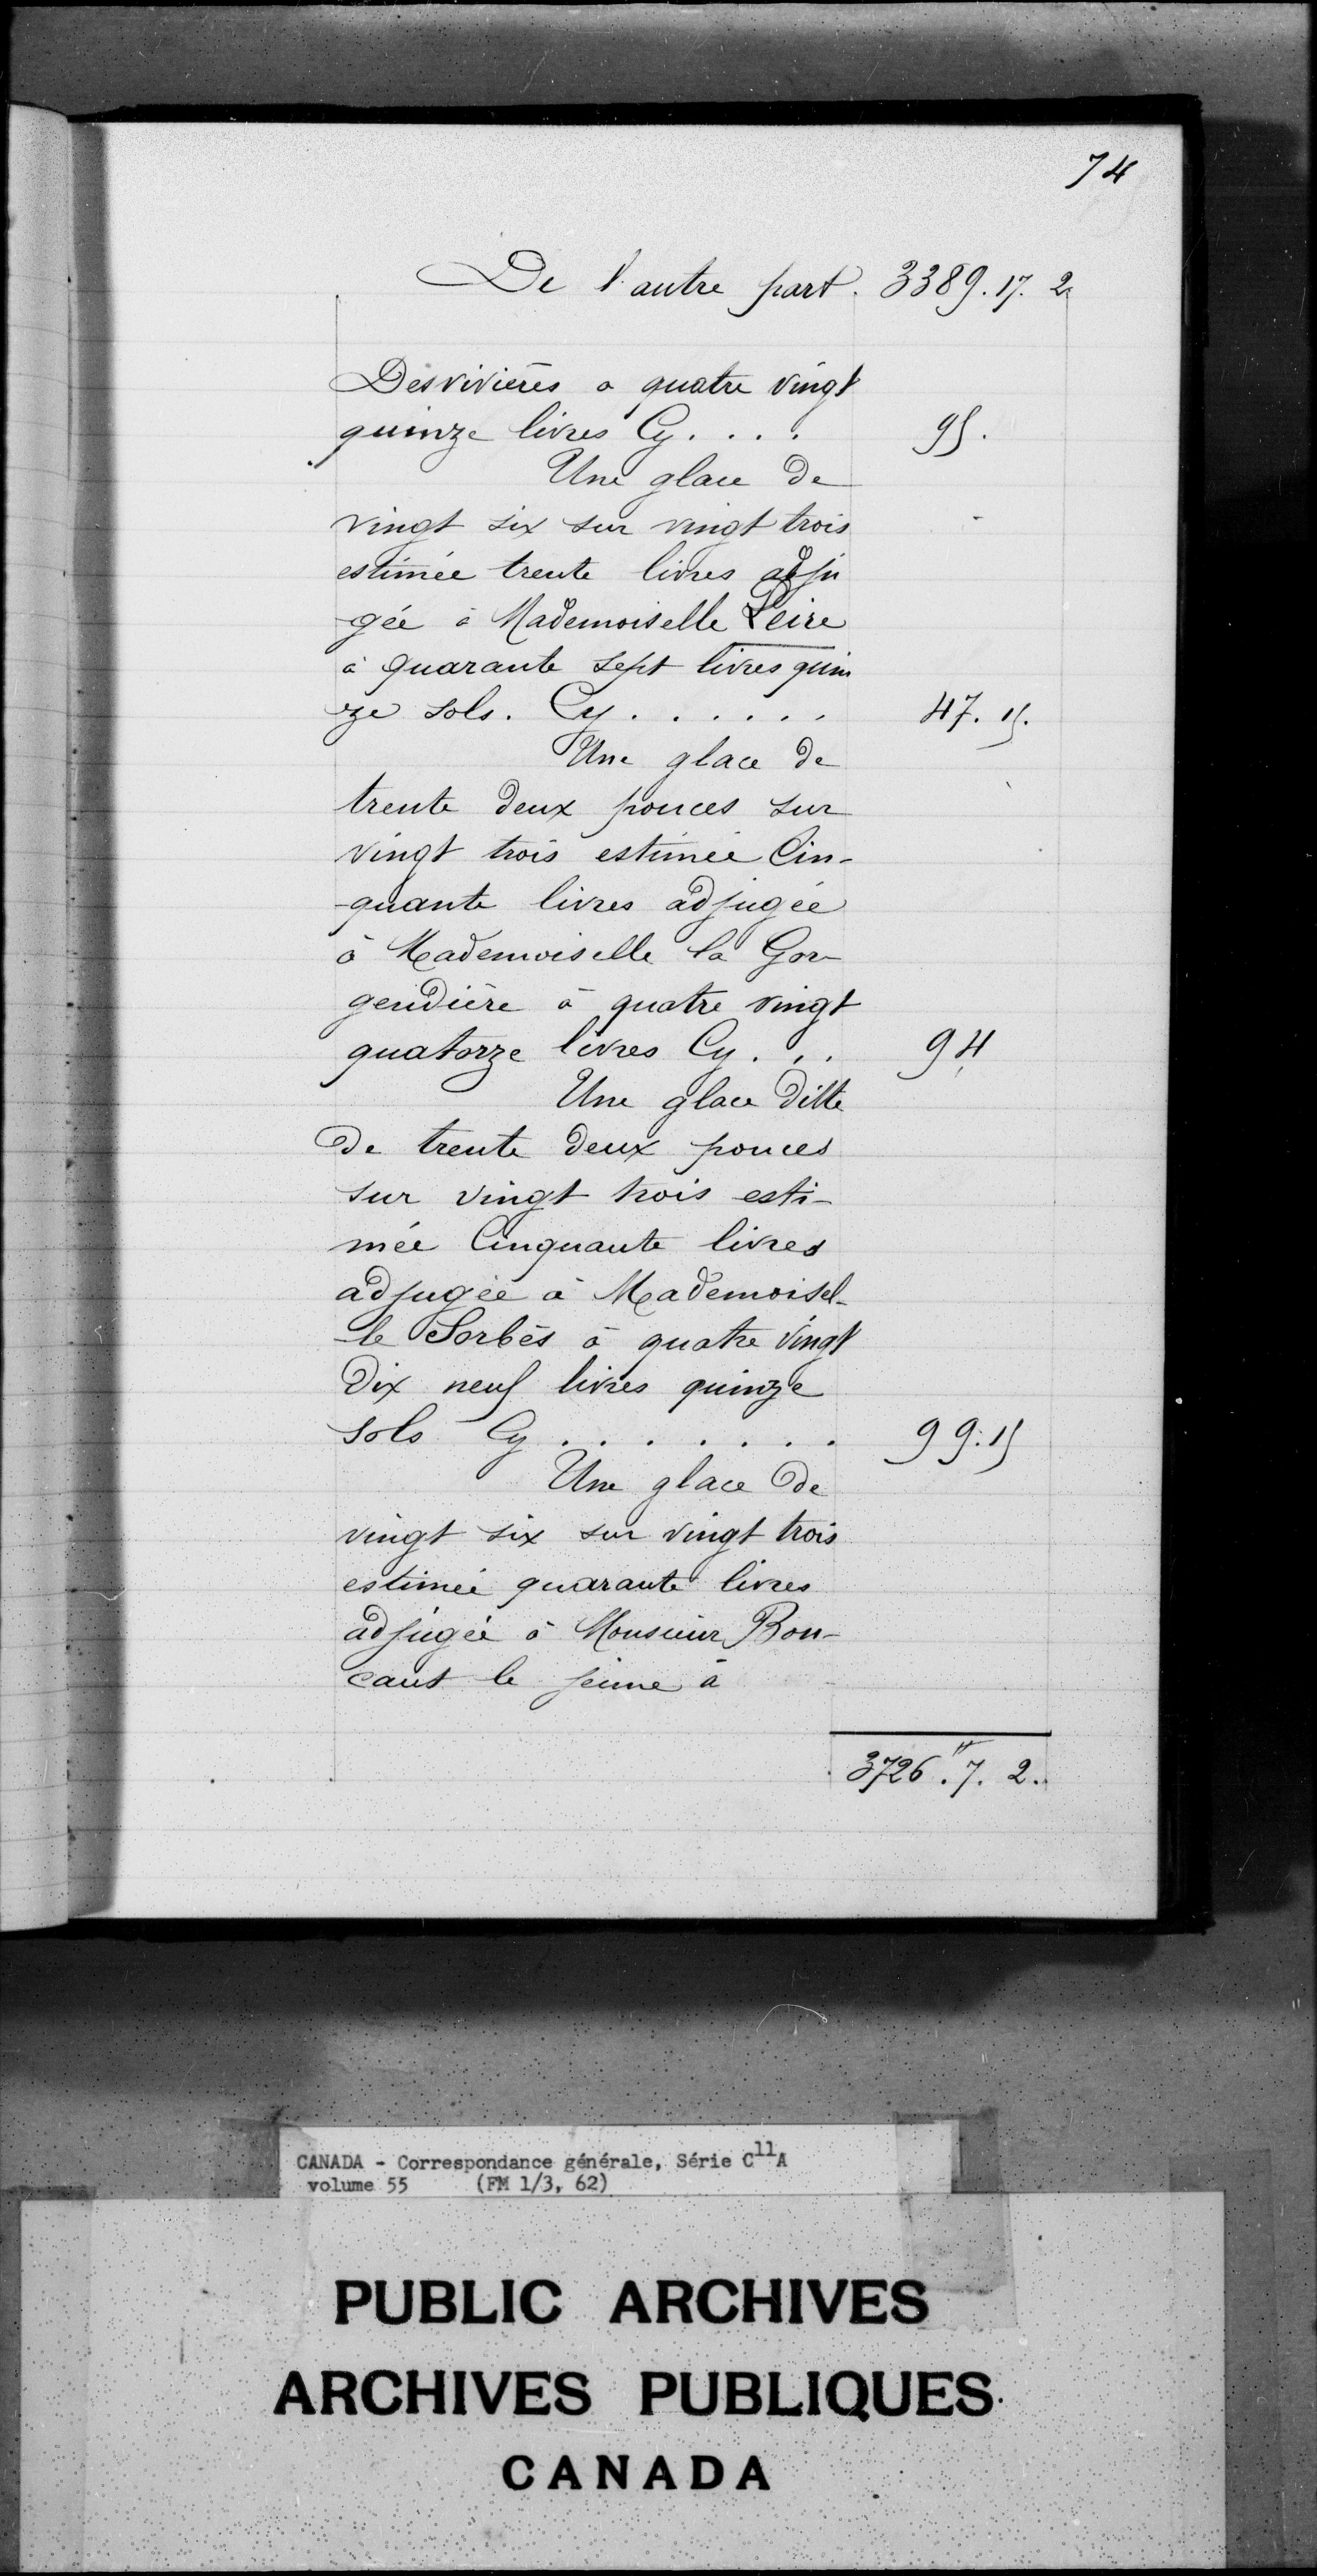 74
De l'autre part. 3389.17.2
Desrivières à quatre vingt
quinze livres Cy.... 95.
Une glace de
vingt six sur vingt trois
estimée trente livres adju
gée à Mademoiselle Leire
à quarante sept livres quin
ze sols. Cy...... 47.15.
Une glace de
trente deux pouces sur
vingt trois estimée Cin-
-quante livres adjugée
à Mademoiselle la Gor-
gendière à quatre vingt
quatorze livres Cy... 94
Une glace ditte
de trente deux pouces
sur vingt trois esti-
mée Cinquante livres
adjugée à Mademoisel-
-le Sorbés à quatre vingt
dix neuf livres quinze
sols Cy....... 99.15
Une glace de
vingt six sur vingt trois
estimée quarante livres
adjugée à Monsieur Bou-
caut le jeune à
3726.7.2.
CANADA - Correspondance générale, Série C11A
volume 55 (FM 1/3, 62)
PUBLIC ARCHIVES
ARCHIVES PUBLIQUES
CANADA